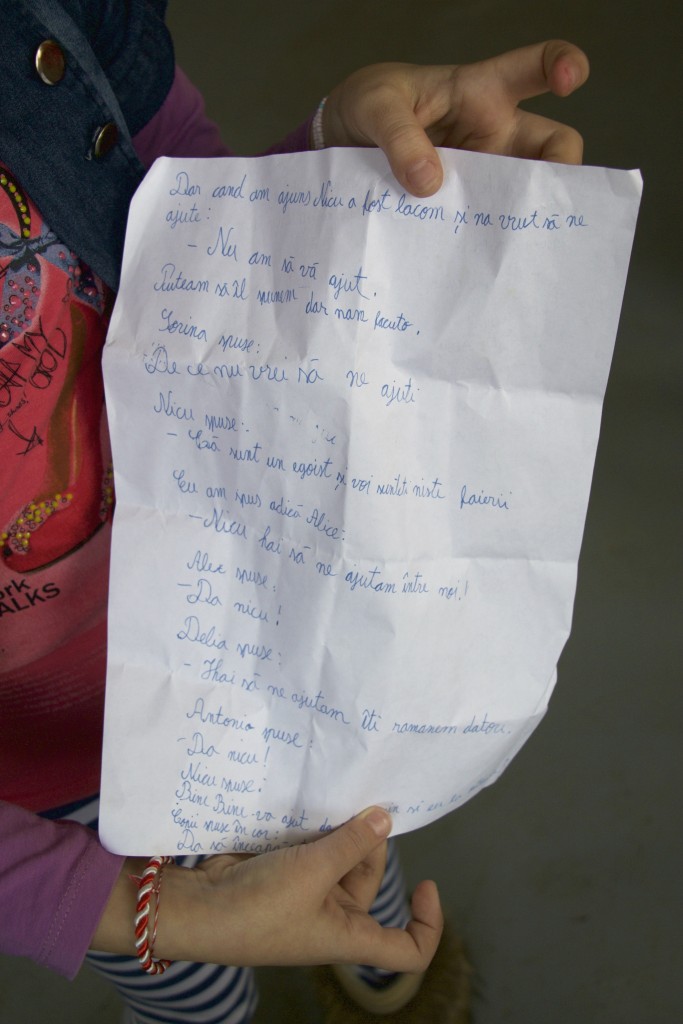 Dar cand am ajuns Nicu a fost lacom și na vrut să ne
ajute:
- Nu am să vă ajut.
Puteam să îl spunem dar nam facuto.
Sorina spuse:
- De ce nu vrei să ne ajuti
Nicu spuse:
- Că sunt un egoist și voi sunteti niste faierii
Eu am spus adică Alice:
- Nicu hai să ne ajutam între noi!
Alex spuse:
- Da nicu!
Delia spuse:
- Hai să ne ajutam îti ramanem datori.
Antonio spuse:
- Da nicu!
Nicu spuse:
Bine Bine va ajut si eu
Copii spuse în cor:
Da să